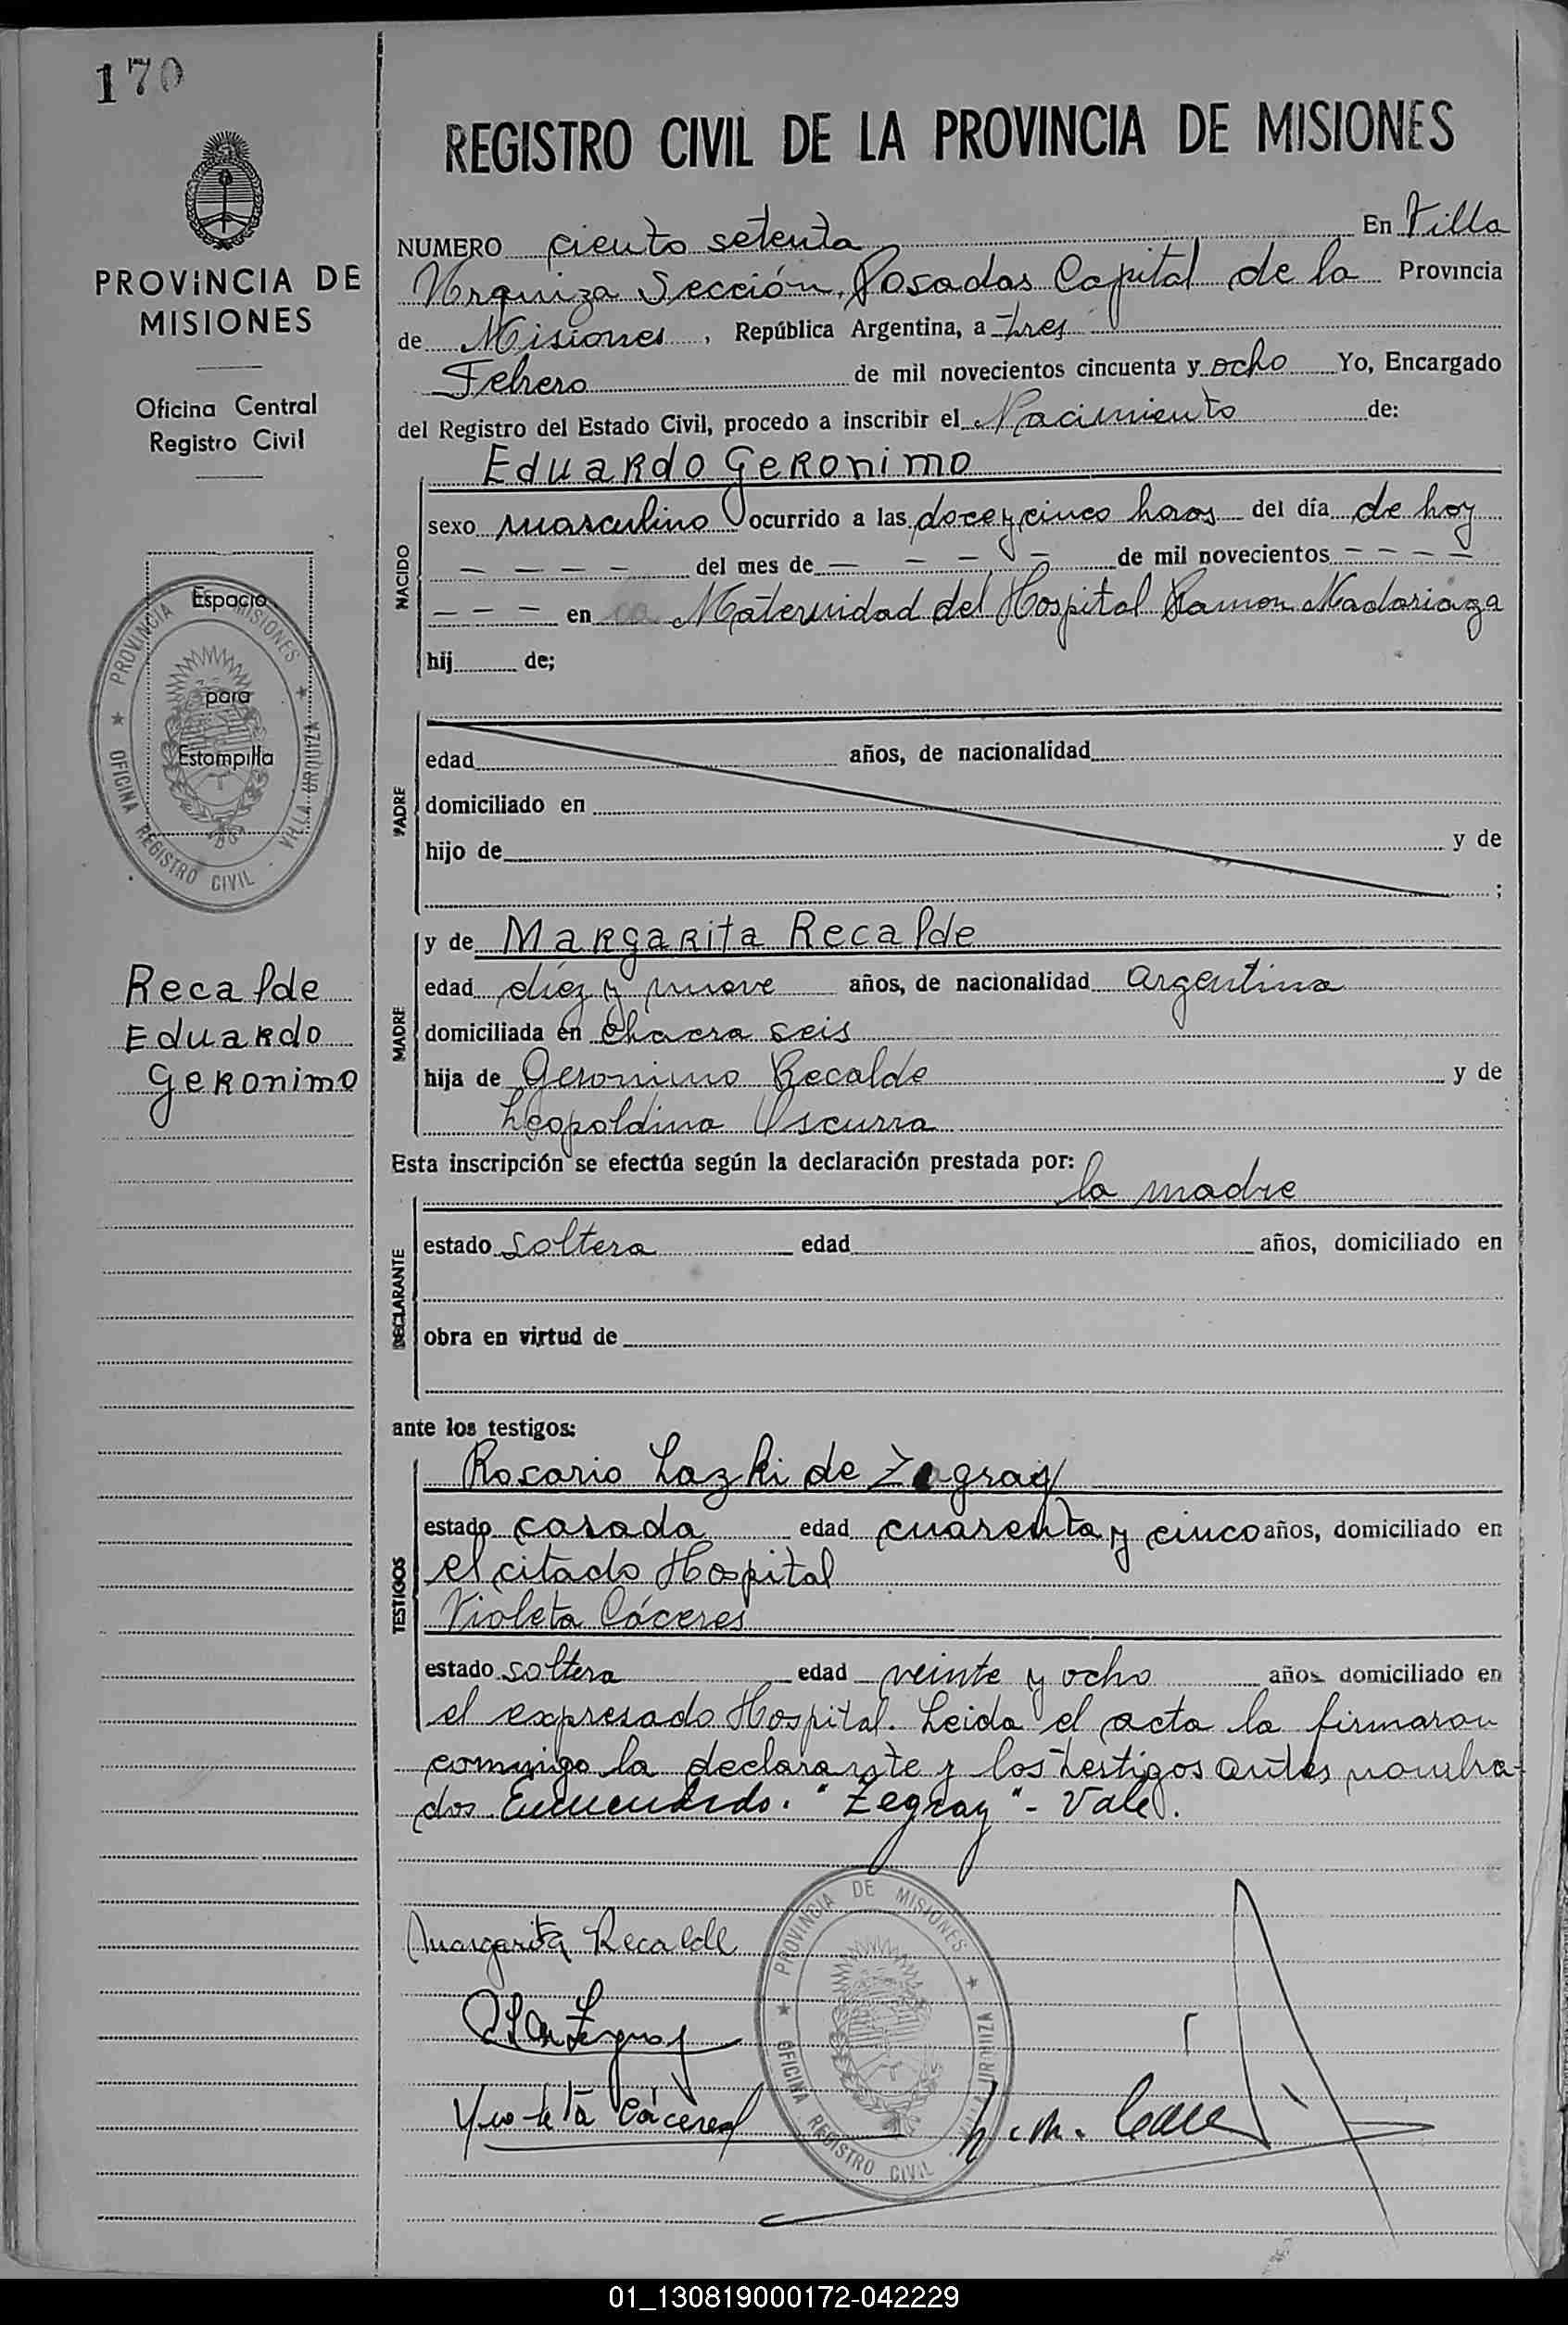 170
PROVINCIA DE
MISIONES
Oficina Central
Registro Civil
Espacio
para
Estampilla
PROVINCIA DE MISIONES
OFICINA REGISTRO CIVIL - VILLA URQUIZA
Recalde
Eduardo
Geronimo
REGISTRO CIVIL DE LA PROVINCIA DE MISIONES
NUMERO ciento setenta En Villa
Urquiza Sección, Posadas Capital de la Provincia
de Misiones, República Argentina, a tres
Febrero de mil novecientos cincuenta y ocho Yo, Encargado
del Registro del Estado Civil, procedo a inscribir el Nacimiento de:
NACIDO
Eduardo Geronimo
sexo masculino ocurrido a las doce y cinco horas del día de hoy
— — — — del mes de — — — — de mil novecientos — — — —
— — — en la Maternidad del Hospital Ramon Madariaga
hij de;
PADRE
edad años, de nacionalidad
domiciliado en
hijo de y de
;
MADRE
y de Margarita Recalde
edad diez y nueve años, de nacionalidad argentina
domiciliada en chacra seis
hija de Geronimo Recalde y de
Leopoldina Oscurra
Esta inscripción se efectúa según la declaración prestada por:
la madre
DECLARANTE
estado soltera edad años, domiciliado en
obra en virtud de
ante los testigos:
TESTIGOS
Rosario Lazki de Zegray
estado casada edad cuarenta y cinco años, domiciliado en
el citado Hospital
Violeta Cáceres
estado soltera edad veinte y ocho años domiciliado en
el expresado Hospital. Leida el acta la firmaron
conmigo la declarante y los testigos antes nombra-
dos. Enmendado. "Zegray" - Vale.
Margarita Recalde
Violeta Cáceres
PROVINCIA DE MISIONES
OFICINA REGISTRO CIVIL URQUIZA
01_130819000172-042229